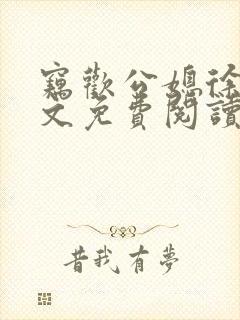 竊歡公媳徐
文免費閱讀
昔我有夢